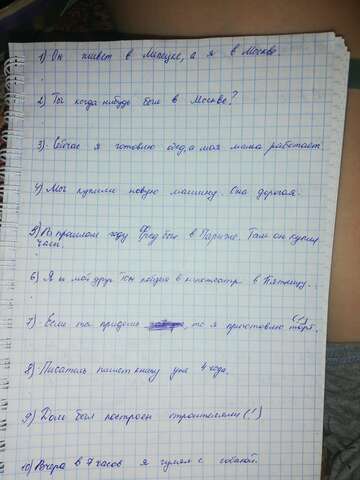 1) Он живет в Липецке, а я в Москве.
2) Ты когда нибудь был в Москве?
3) Сейчас я готовлю обед, а моя мама работает.
4) Мы купили новую машину. Она дорогая.
5) В прошлом году Фред был в Париже. Там он купил
часы.
6) Я и мой друг Том пойдем в кинотеатр в Пятницу.
7) Если ты придешь, то я приготовлю торт.
8) Писатель пишет книгу уже 4 года.
9) Дом был построен строителями (!)
10) Вчера в 7 часов я гулял с собакой.